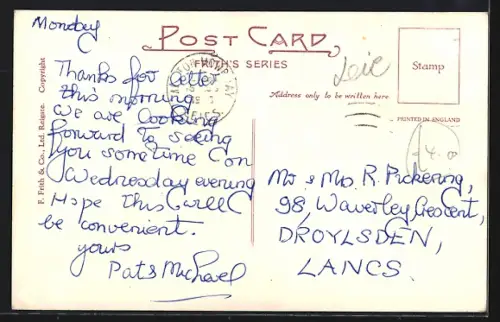 Monday
POST CARD
FRITH'S SERIES
Leic
Stamp
Address only to be written here
PRINTED IN ENGLAND
F. Frith & Co., Ltd. Reigate. Copyright
Thanks for letter
this morning
We are looking
forward to seeing
you sometime on
Wednesday evening
Hope this will
be convenient.
yours
Pat & Michael
Mr & Mrs. R. Pickering,
98, Waverley Crescent,
DROYLSDEN,
LANCS.